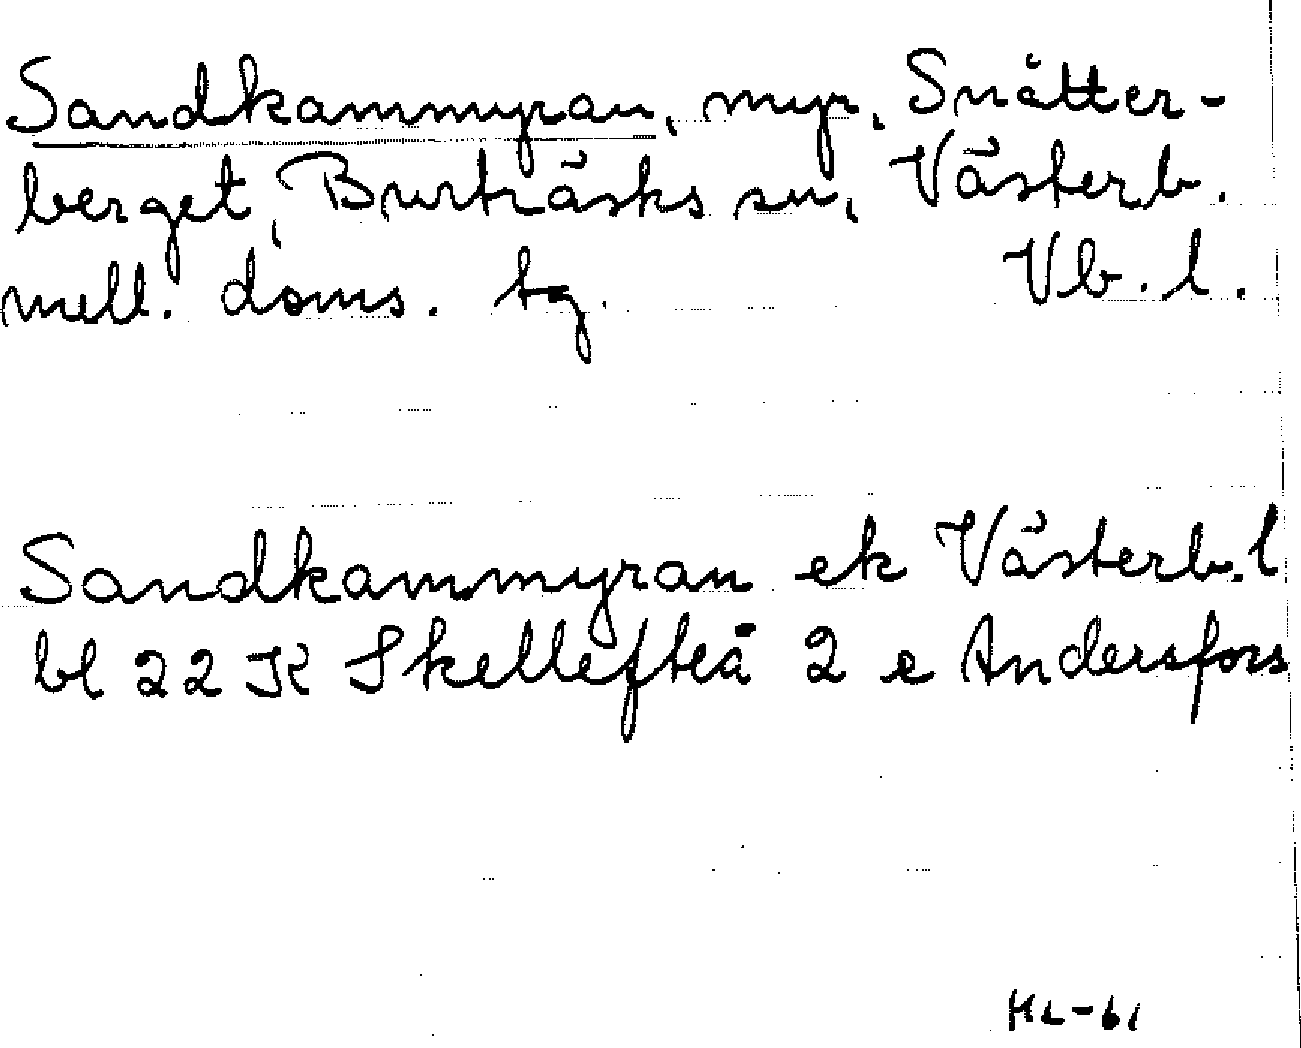 Sandkammyran, myr, Snåtter-
berget, Burträsks sn, Västerb.
mell. doms. tg. Vb. l.
Sandkammyran ek Västerb. l
bl 22 K Skellefteå 2 e Andersfors
HL-61